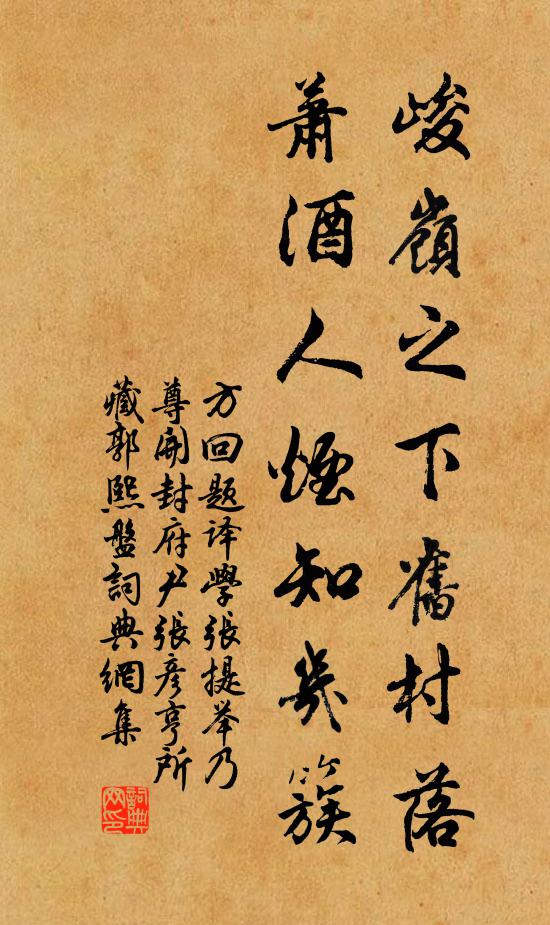 峻嶺之下舊村落
蕭酒人煙知幾簇
方回题译學張提举乃
尊開封府尹張彥亨所
藏郭熙盤詞典網集
詞典网印